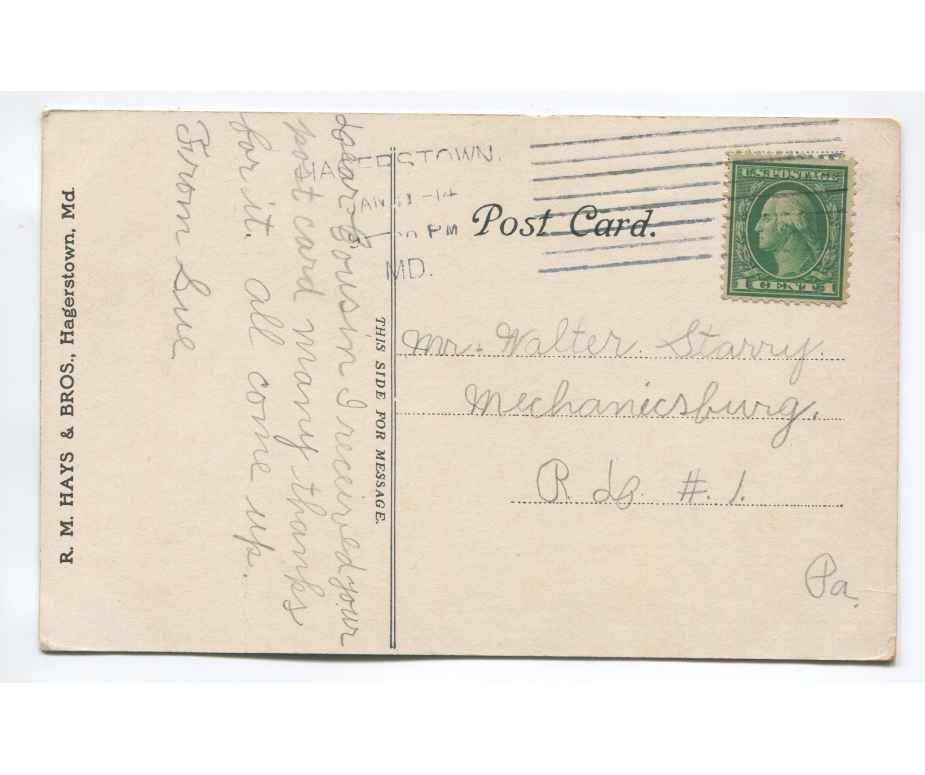 R. M. HAYS & BROS., Hagerstown, Md.
Dear Cousin I received your
post card many thanks
for it. all come up.
From Sue
THIS SIDE FOR MESSAGE.
TOWN,
14
PM
MD.
Post Card.
U.S. POSTAGE
1 CENT 1
Mr. Walter Starry.
Mechanicsburg.
R #. 1.
Pa.